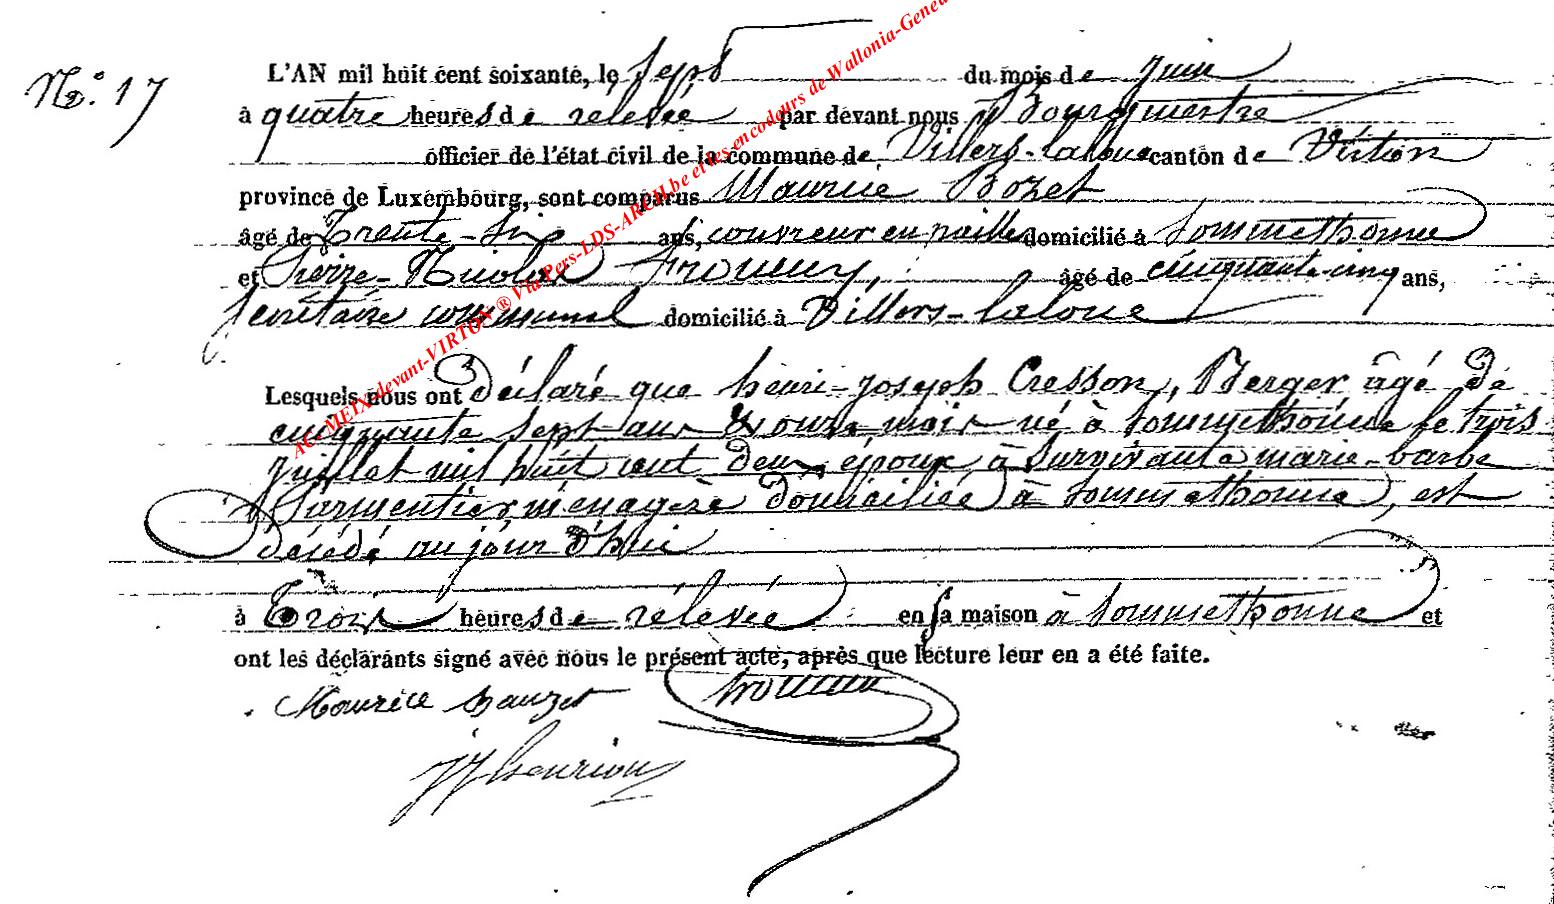 N°. 17
L'AN mil huit cent soixante, le Sept du mois de juin
à quatre heures de relevée par devant nous Bourgmestre
officier de l'état civil de la commune de Villers-laloue canton de Virton
province de Luxembourg, sont comparus Maurice Bozet
âgé de Trente-Six ans, couvreur en paille domicilié à Sommethonne
et Pierre-Nicolas âgé de cinquante-cinq ans,
Secrétaire communal domicilié à Villers-laloue
Lesquels nous ont déclaré que henri-joseph Cresson, Berger âgé de
cinquante Sept ans & onze mois né à Sommethonne le trois
juillet mil huit cent deux, époux à Survivante marie-barbe
Parmentier, ménagère domiciliée à Sommethonne, est
décédé aujourd'hui
à Trois heures de rélevée en sa maison à Sommethonne et
ont les déclarants signé avec nous le présent acte, après que lecture leur en a été faite.
Mourice bauzet
JJ henrion
AC-MEIX-devant-VIRTON ® Via Pers-LDS-ARCH.be et les encodeurs de Wallonia-Genea